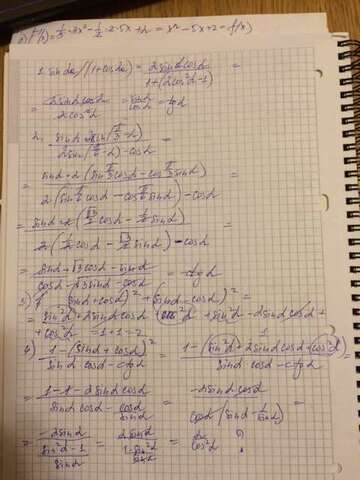 = 1/3·3x² - 1/2·2·5x + 2 = x² - 5x + 2 = f(x)
1. sin2α/(1+cos2α) = 2sinαcosα / 1+(2cos²α-1) =
= 2sinαcosα / 2cos²α = sinα / cosα = tgα
2. =
=
2(sin π/6 cosα - cos π/6 sinα) - cosα
=
2(1/2 cosα - √3/2 sinα) - cosα
= sinα+√3cosα-sinα / cosα-√3sinα-cosα = -ctgα
3) (sinα+cosα)² + (sinα-cosα)² =
= sin²α + 2sinαcosα + cos²α + sin²α - 2sinαcosα +
+ cos²α = 1+1 = 2
4) 1-(sinα+cosα)² / sinαcosα-ctgα = 1-(sin²α+2sinαcosα+cos²α) / sinαcosα-ctgα =
= 1-1-2sinαcosα / sinαcosα - cosα/sinα = -2sinαcosα / cosα(sinα - 1/sinα) =
= -2sinα / (sin²α-1 / sinα) = 2sinα / (1-sin²α / sinα) =